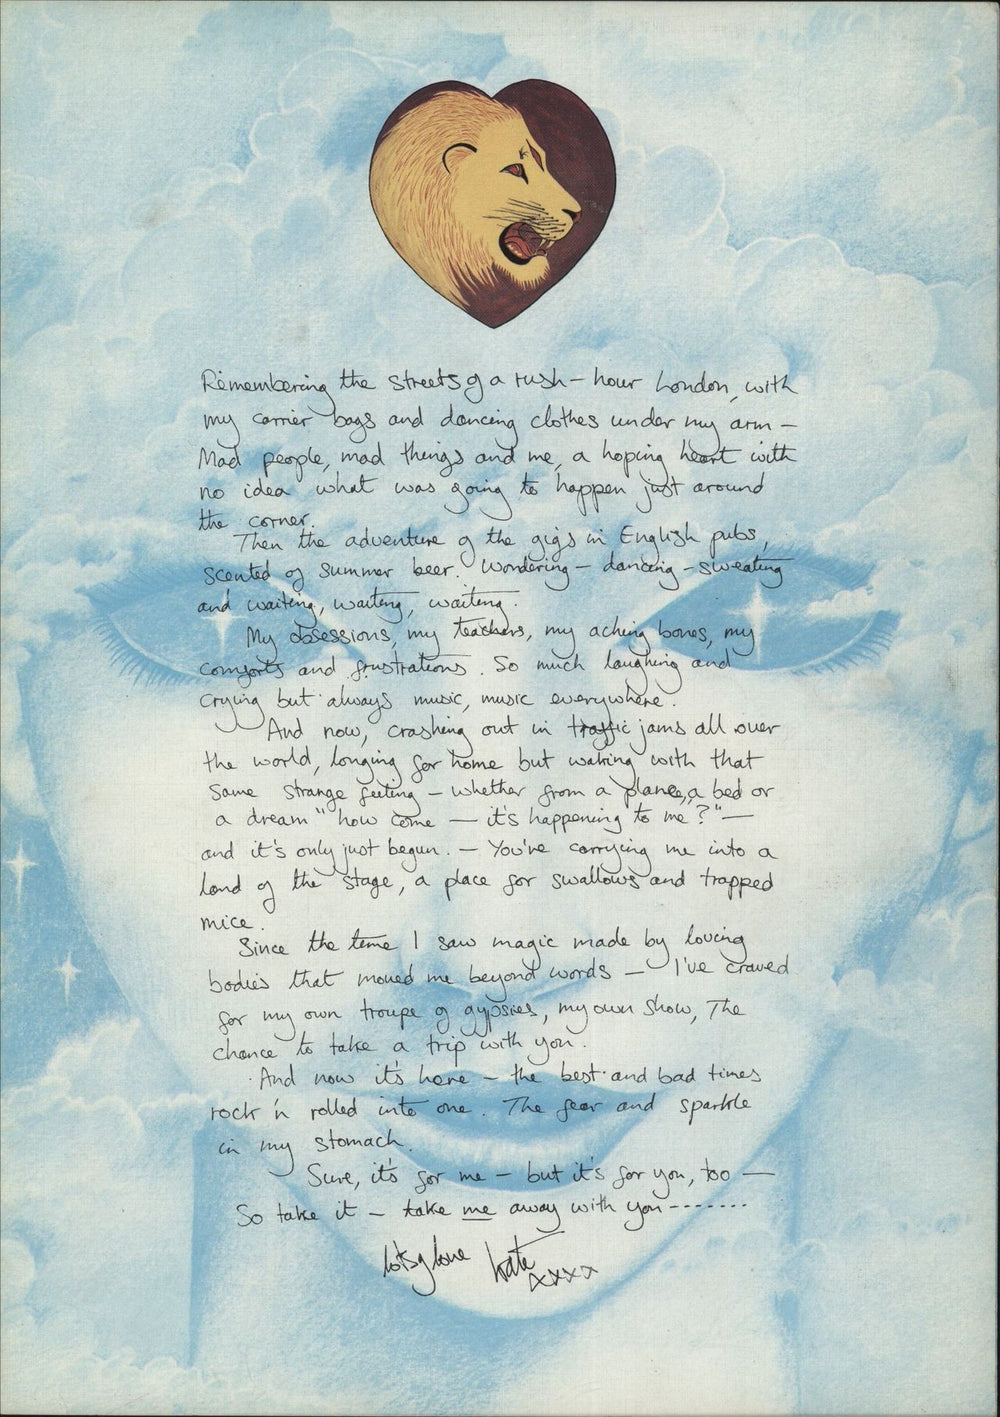 Remembering the streets of a rush-hour London, with
my carrier bags and dancing clothes under my arm –
Mad people, mad things and me, a hoping heart with
no idea what was going to happen just around
the corner.
Then the adventure of the gigs in English pubs,
scented of summer beer. Wondering – dancing – sweating
and waiting, waiting, waiting.
My obsessions, my teachers, my aching bones, my
comforts and frustrations. So much laughing and
crying but always music, music everywhere.
And now, crashing out in traffic jams all over
the world, longing for home but waking with that
same strange feeling – whether from a plane, a bed or
a dream "how come – it's happening to me?" –
and it's only just begun. – You're carrying me into a
land of the stage, a place for swallows and trapped
mice.
Since the time I saw magic made by loving
bodies that moved me beyond words – I've craved
for my own troupe of gypsies, my own show, The
chance to take a trip with you.
And now it's here – the best and bad times
rock 'n rolled into one. The fear and sparkle
in my stomach.
Sure, it's for me – but it's for you, too –
So take it – take me away with you-------
lots of love Kate
xxxx